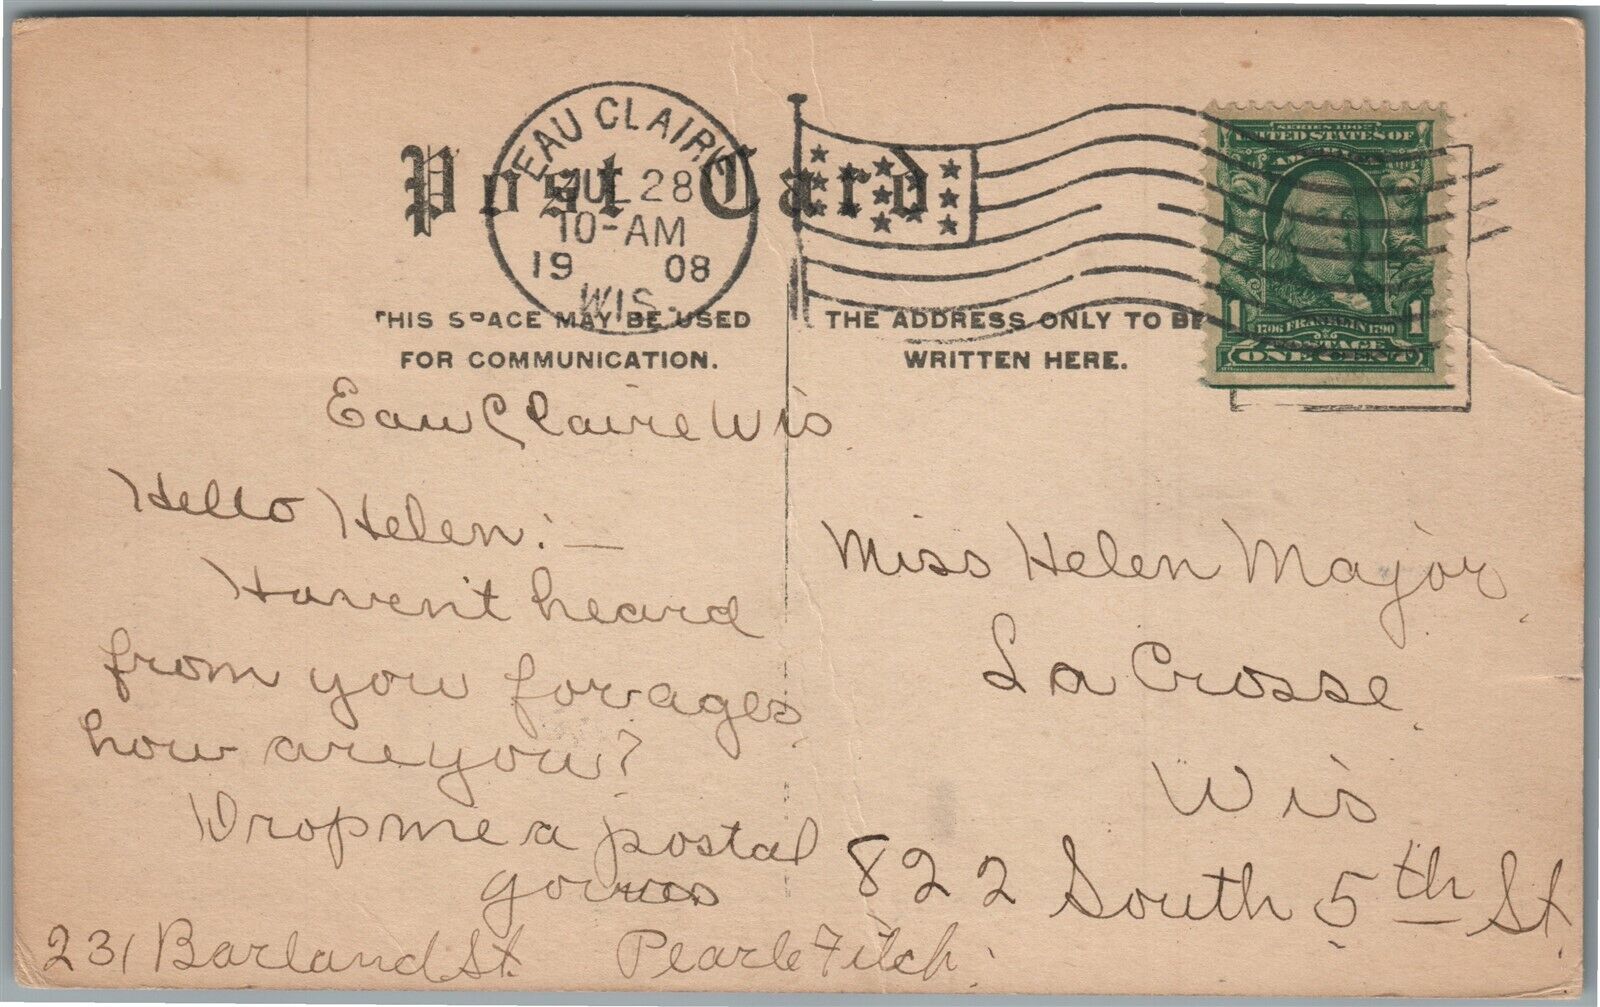 Post Card
EAU CLAIRE
JUL 28
10-AM
19 08
WIS.
SERIES 1902
UNITED STATES OF
AMERICA
1 1
1706 FRANKLIN 1790
POSTAGE
ONE CENT
THIS SPACE MAY BE USED
FOR COMMUNICATION.
THE ADDRESS ONLY TO BE
WRITTEN HERE.
Eau Claire Wis
Hello Helen:—
Haven't heard
from you for ages
how are you?
Drop me a postal
yours
231 Barland St. Pearle Fitch.
Miss Helen Major,
La Crosse,
Wis
822 South 5th St.